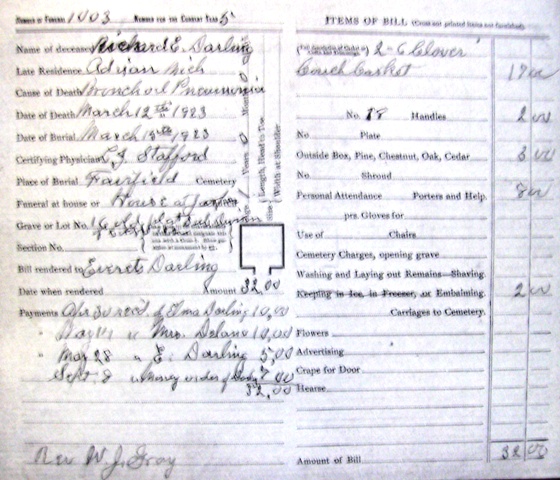 Number of Funeral 1003 Number for the Current Year 5
Name of deceased Richard E. Darling
Late Residence Adrian Mich
Cause of Death Bronchial Pneumonia
Date of Death March 12th 1923
Date of Burial March 1923
Certifying Physician L. J. Stafford
Place of Burial Fairfield Cemetery
Funeral at house or House at
Grave or Lot No.
Section No.
Bill rendered to Everett Darling
Date when rendered Amount 32.00
Payments Apr 30 rec'd of Elma Darling 10,00
" " Mrs. Delano 10,00
" May 28 " E. Darling 5,00
Sept. 8 " Money order 7 00
32,00
Rev W. J. Gray
Years Months
Length, Head to Toe
Width at Shoulder
Size
ITEMS OF BILL (Cross out printed items not furnished)
2-6 Clover
Couch Casket 17 00
No. 78 Handles 2 00
No. Plate
Outside Box, Pine, Chestnut, Oak, Cedar 3 00
No. Shroud
Personal Attendance Porters and Help. 8 00
prs. Gloves for
Use of Chairs
Cemetery Charges, opening grave
Washing and Laying out Remains—Shaving
Keeping in Ice, in Freezer, or Embalming. 2 00
Carriages to Cemetery.
Flowers
Advertising
Crape for Door
Hearse
Amount of Bill 32 00